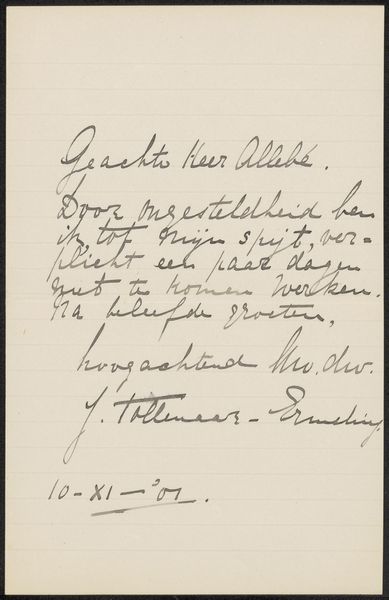 Geachte Heer Allebé.
Door ongesteldheid ben
ik, tot mijn spijt, ver-
plicht een paar dagen
niet te komen werken.
Na beleefde groeten,
hoogachtend Uw. dw.
J. Tollenaar-Ermeling
10-XI-'01.